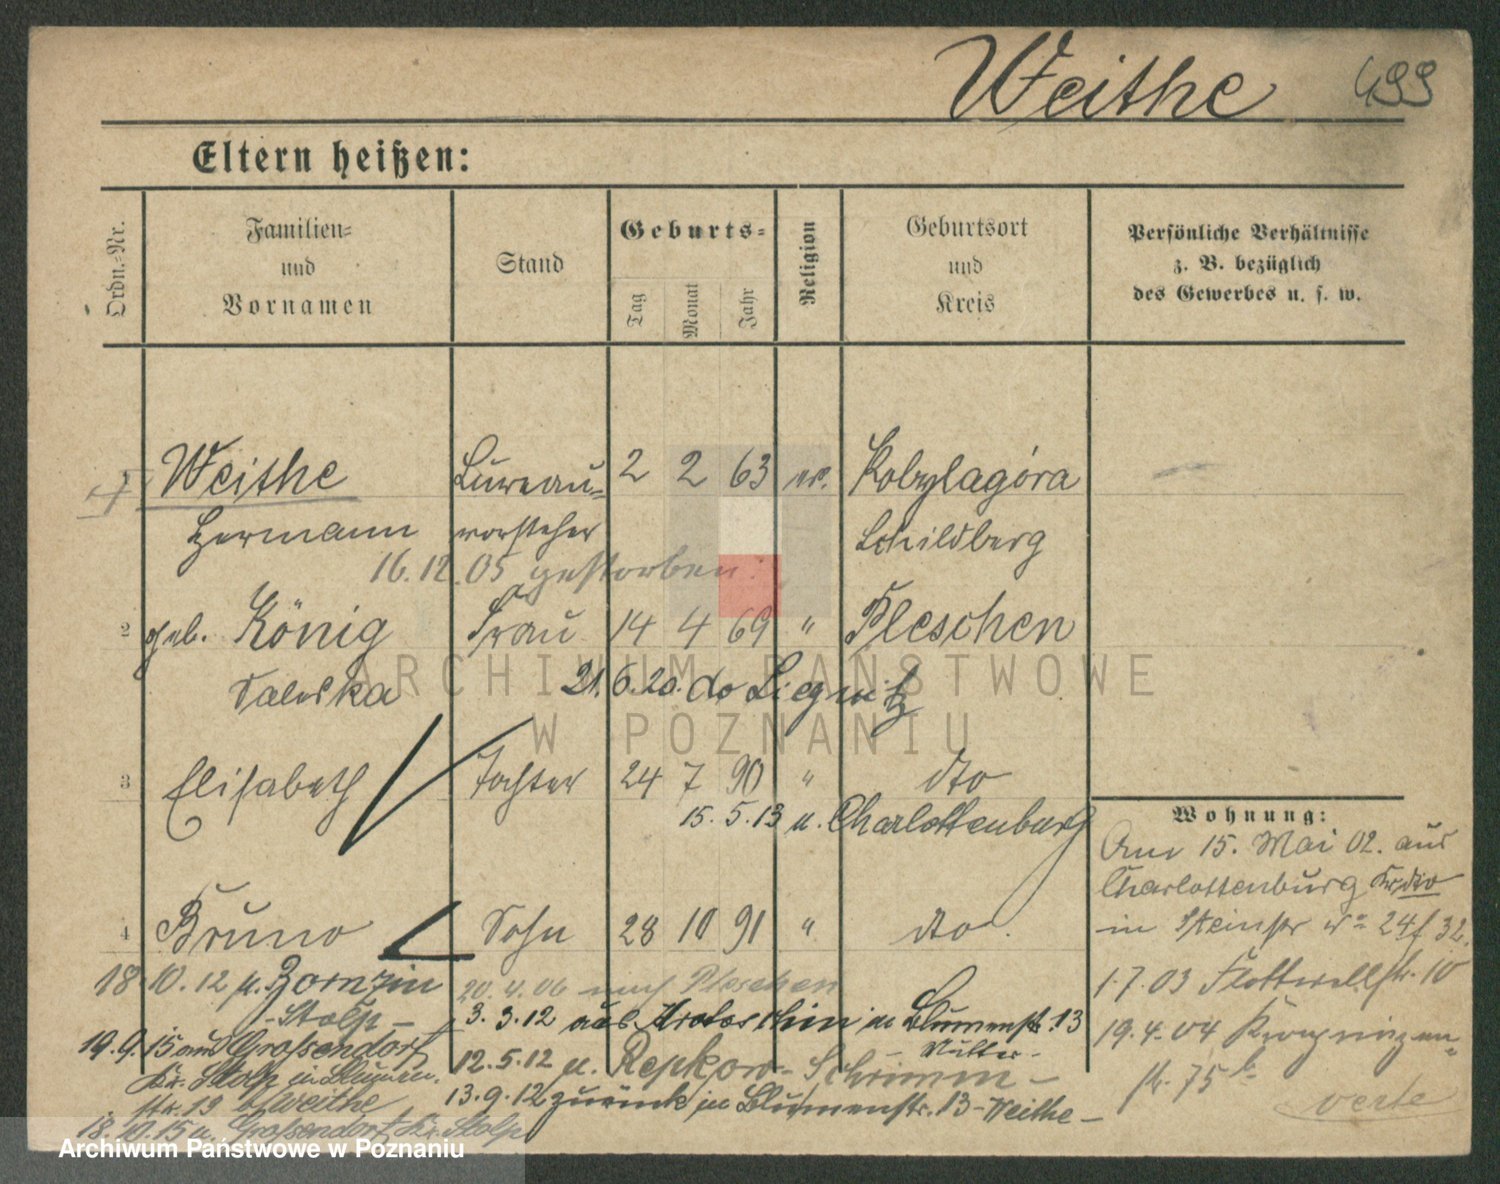 Weithe 499
Eltern heißen:
Ordn.-Nr.
Familien-
und
Vornamen
Stand
Geburts-
Tag
Monat
Jahr
Religion
Geburtsort
und
Kreis
Persönliche Verhältnisse
z. B. bezüglich
des Gewerbes u. s. w.
1 Weithe Bureau- 2 2 63 ev. Kobylagóra
Hermann vorsteher Schildberg
16.12.05 gestorben.
2 geb. König Frau 14 4 69 " Pleschen
Valeska 21.6.20. do Liegnitz
ARCHIWUM PAŃSTWOWE
W POZNANIU
3 Elisabeth Tochter 24 7 90 " dto
15.5.13 n. Charlottenburg
4 Bruno Sohn 28 10 91 " dto.
18.10.12 n. Zornzin
- Stolp -
19.9.15 aus Grossendorf
Kr. Stolp in Blumen-
str. 19 b/Weithe
18.10.15 n. Grossendorf Kr. Stolp
20.4.06 nach Pleschen
3.3.12 aus Krotoschin in Blumenstr. 13
- Mutter -
12.5.12 n. Repkow - Schrimm -
13.9.12 zurück in Blumenstr. 13 - Weithe -
Wohnung:
Am 15. Mai 02. aus
Charlottenburg Kr. dto
in Steinstr No 24/32.
1.7.03 Flottwellstr. 10
19.4.04 Kronprinzen-
str. 75b
verte
Archiwum Państwowe w Poznaniu